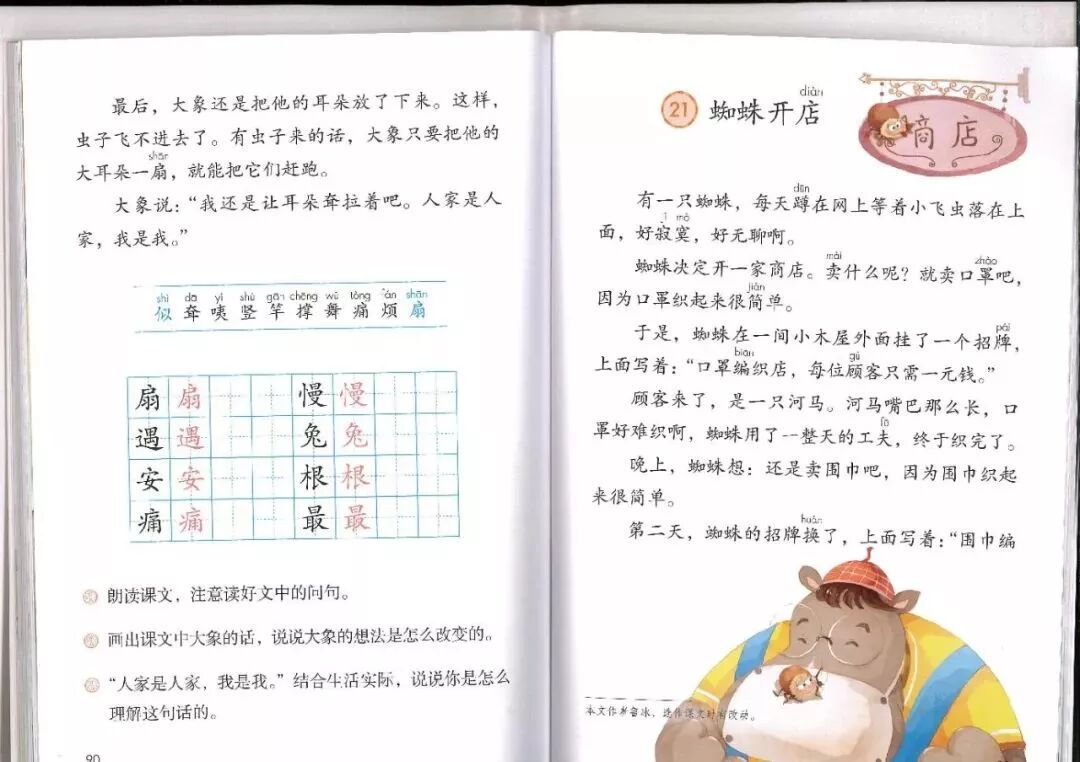 最后，大象还是把他的耳朵放了下来。这样，
虫子飞不进去了。有虫子来的话，大象只要把他的
shān
大耳朵一扇，就能把它们赶跑。
大象说：“我还是让耳朵耷拉着吧。人家是人
家，我是我。”
shì dā yí shù gān chēng wǔ tòng fán shān
似 耷 咦 竖 竿 撑 舞 痛 烦 扇
扇 扇 慢 慢
遇 遇 兔 兔
安 安 根 根
痛 痛 最 最
朗读课文，注意读好文中的问句。
画出课文中大象的话，说说大象的想法是怎么改变的。
“人家是人家，我是我。”结合生活实际，说说你是怎么
理解这句话的。
90
diàn
21 蜘蛛开店
商店
dūn
有一只蜘蛛，每天蹲在网上等着小飞虫落在上
jì mò
面，好寂寞，好无聊啊。
mài zhào
蜘蛛决定开一家商店。卖什么呢？就卖口罩吧，
jiǎn
因为口罩织起来很简单。
pái
于是，蜘蛛在一间小木屋外面挂了一个招牌，
biān gù
上面写着：“口罩编织店，每位顾客只需一元钱。”
顾客来了，是一只河马。河马嘴巴那么长，口
fū
罩好难织啊，蜘蛛用了一整天的工夫，终于织完了。
晚上，蜘蛛想：还是卖围巾吧，因为围巾织起
来很简单。
huàn
第二天，蜘蛛的招牌换了，上面写着：“围巾编
本文作者鲁冰，选作课文时有改动。